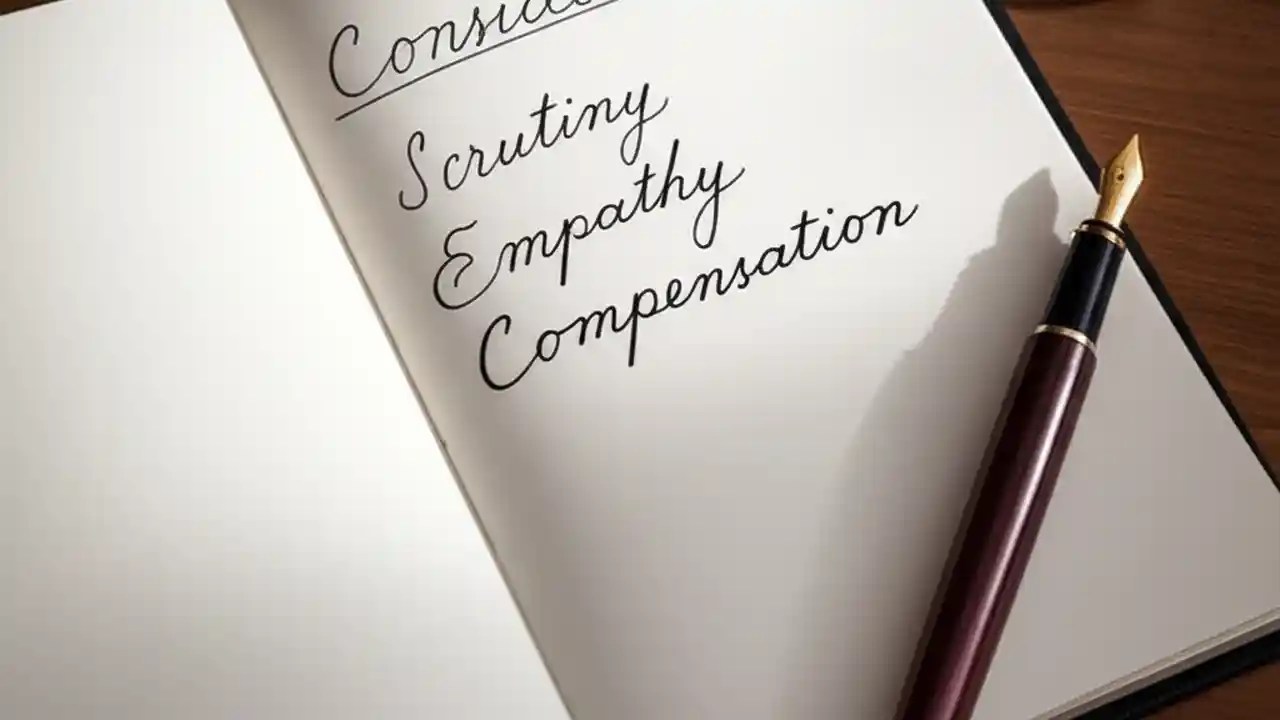 Scrutiny
Empathy
Compensation